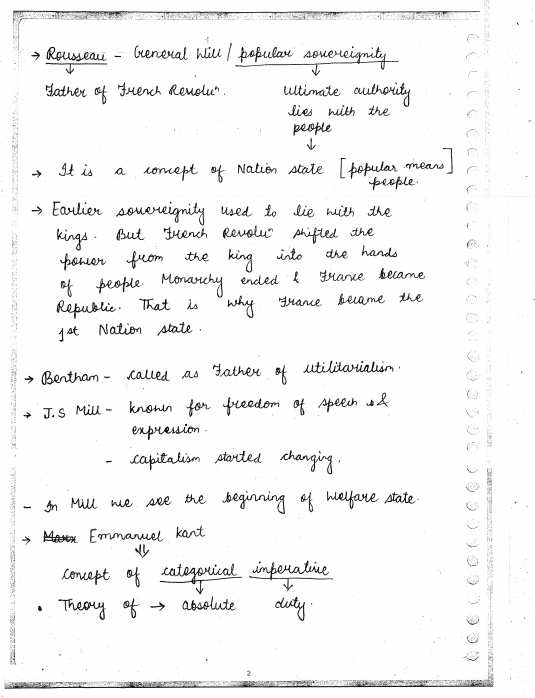 → Rousseau - General Will / popular sovereignity
↓ ↓
Father of French Revoluⁿ. Ultimate authority
lies with the
people
↓
→ It is a concept of Nation state [popular means]
people.
→ Earlier sovereignity used to lie with the
kings. But French Revoluⁿ shifted the
power from the king into the hands
of people. Monarchy ended & France became
Republic. That is why France became the
1st Nation state.
→ Bentham - called as Father of utilitarialism.
→ J.S Mill - known for freedom of speech &
expression.
- capitalism started changing.
- In Mill we see the beginning of Welfare state.
→ Marx Emmanuel kant
⇓
concept of categorical imperative
↓ ↓
• Theory of → absolute duty.
2